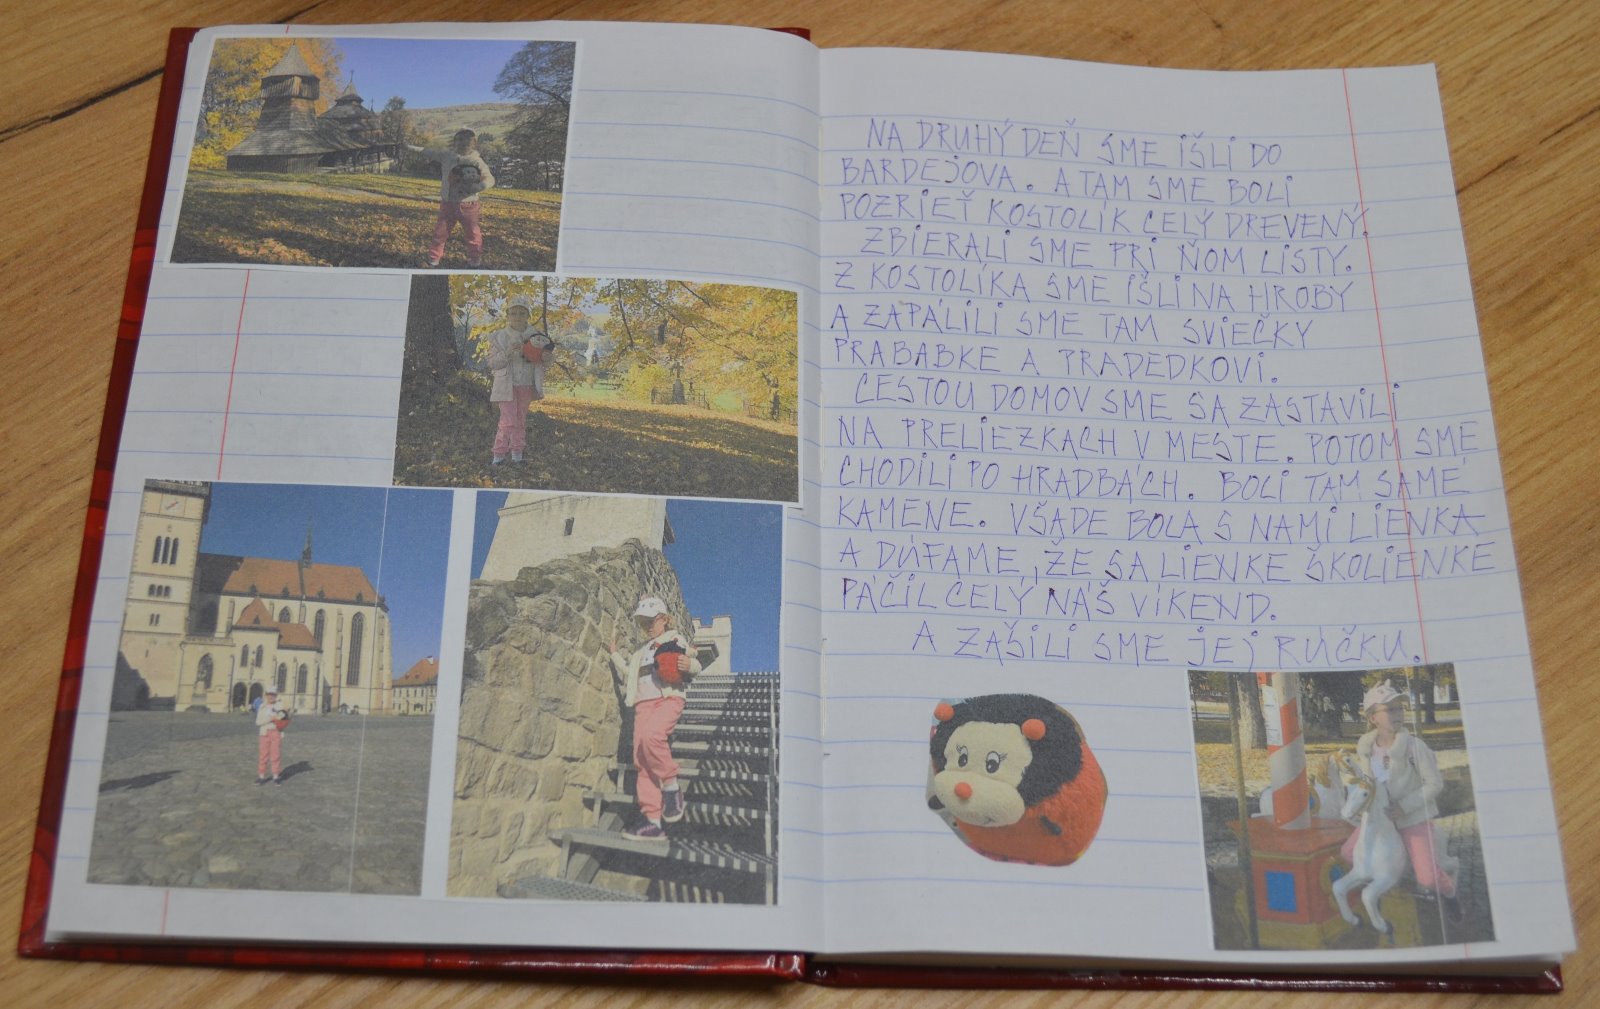 NA DRUHÝ DEŇ SME IŠLI DO
BARDEJOVA. A TAM SME BOLI
POZRIEŤ KOSTOLÍK CELÝ DREVENÝ.
ZBIERALI SME PRI ŇOM LISTY.
Z KOSTOLÍKA SME IŠLI NA HROBY
A ZAPÁLILI SME TAM SVIEČKY
PRABABKE A PRADEDKOVI.
CESTOU DOMOV SME SA ZASTAVILI
NA PRELIEZKACH V MESTE. POTOM SME
CHODILI PO HRADBÁCH. BOLI TAM SAMÉ
KAMENE. VŠADE BOLA S NAMI LIENKA
A DÚFAME, ŽE SA LIENKE ŠKOLIENKE
PÁČIL CELÝ NÁŠ VÍKEND.
A ZAŠILI SME JEJ RÚČKU.